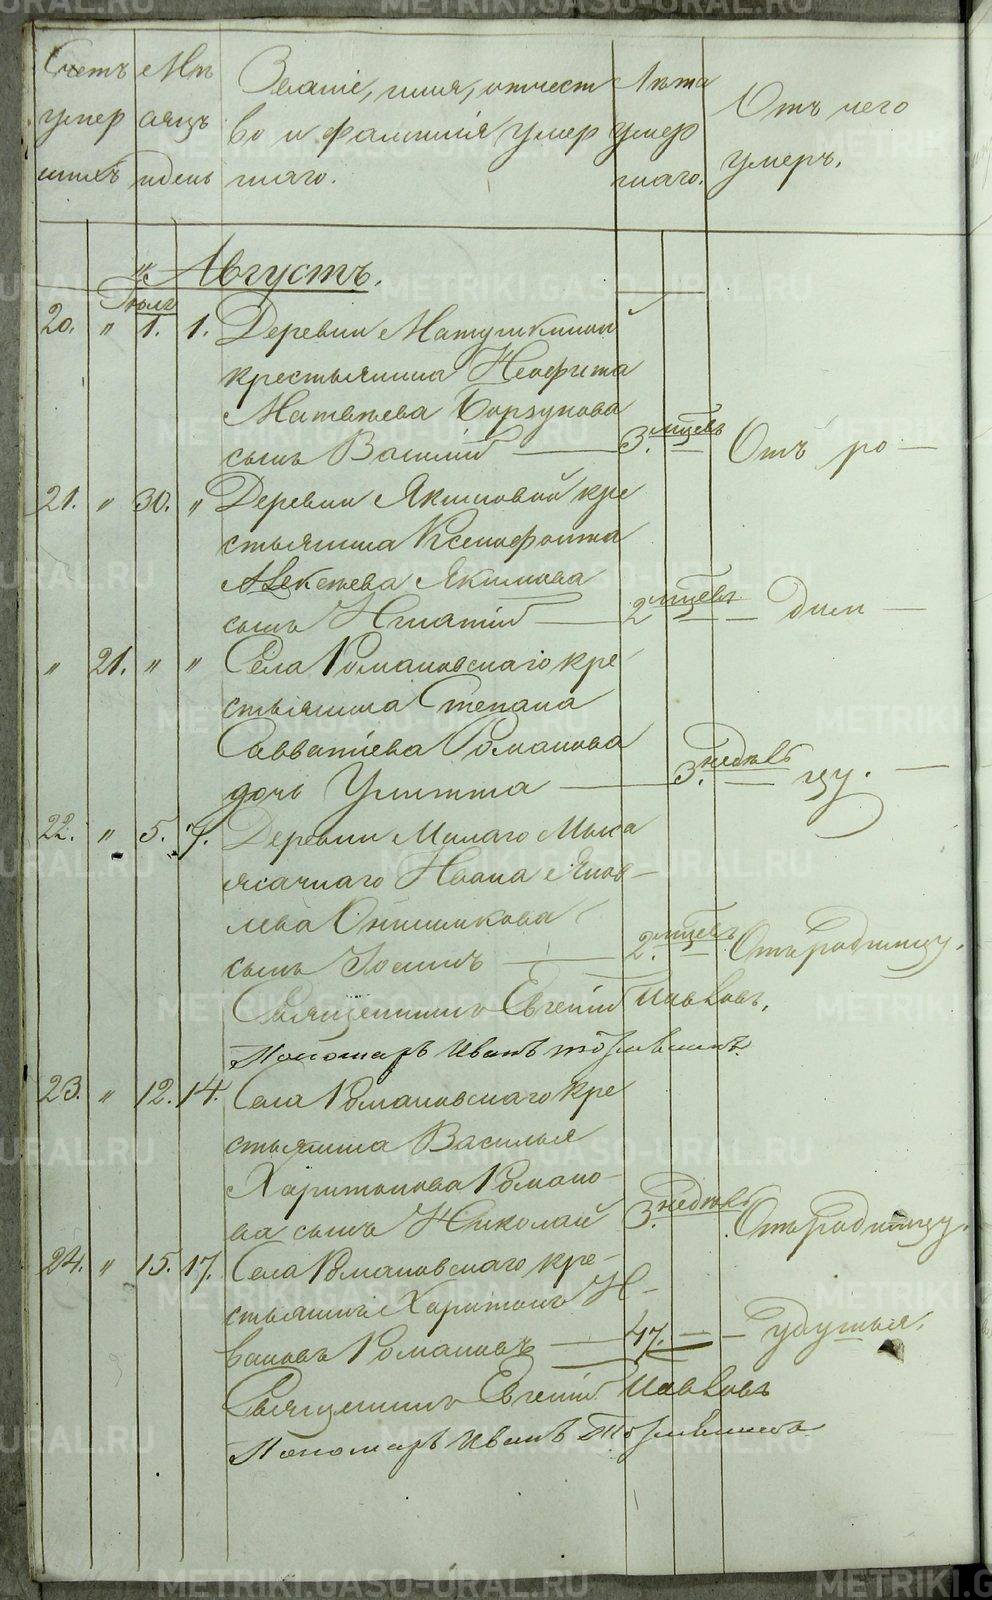 Счетъ умер шихъ
Мѣ сяцъ и день
Званіе, имя, отчест во и фамилія умер шаго.
Лѣта умер шаго.
Отъ чего умеръ.
Августъ.
Іюля
20. " 1. 1. Деревни Матушкиной
крестьянина Неофита
Матвѣева Борзунова
сынъ Василій 3. мцевъ Отъ ро
21. " 30. " Деревни Якимовой кре
стьянина Ксенофонта
Алексѣева Якимова
сынъ Игнатій 2 мцевъ дим
" 21. " " Села Романовскаго кре
стьянина Степана
Савватіева Романова
дочь Улитта 3. недѣль цу.
22. " 5. 7. Деревни Малаго Мыса
ясачнаго Ивана Яков
лева Онишкова
сынъ 2. мцевъ Отъ родимцу.
Священникъ Евгеній
Пономарь Иванъ
23. " 12. 14. Села Романовскаго кре
стьянина Василья
Харитонова Романо
ва сынъ Николай 3. недѣль Отъ родимцу.
24. " 15. 17. Села Романовскаго кре
стьянинъ Харитонъ И
вановъ Романовъ 47. удушья.
Священникъ Евгеній
Пономарь Иванъ
METRIKI.GASO-URAL.RU